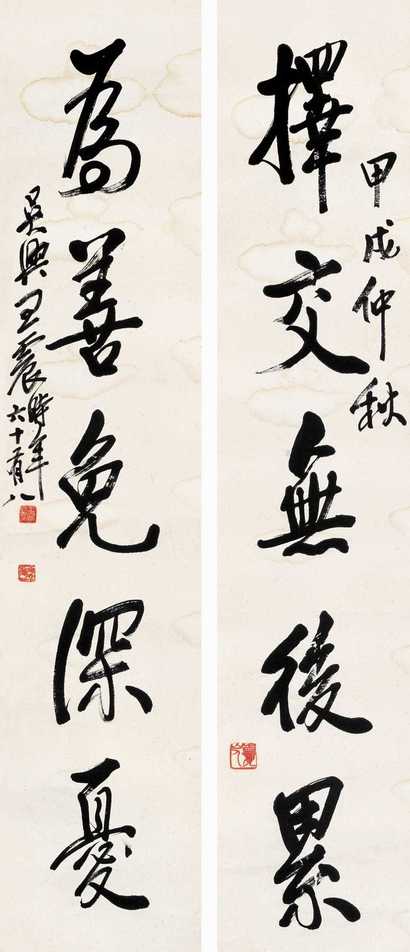 擇交無後累
甲戌仲秋
為善免深憂
吳興王震時年
六十有八